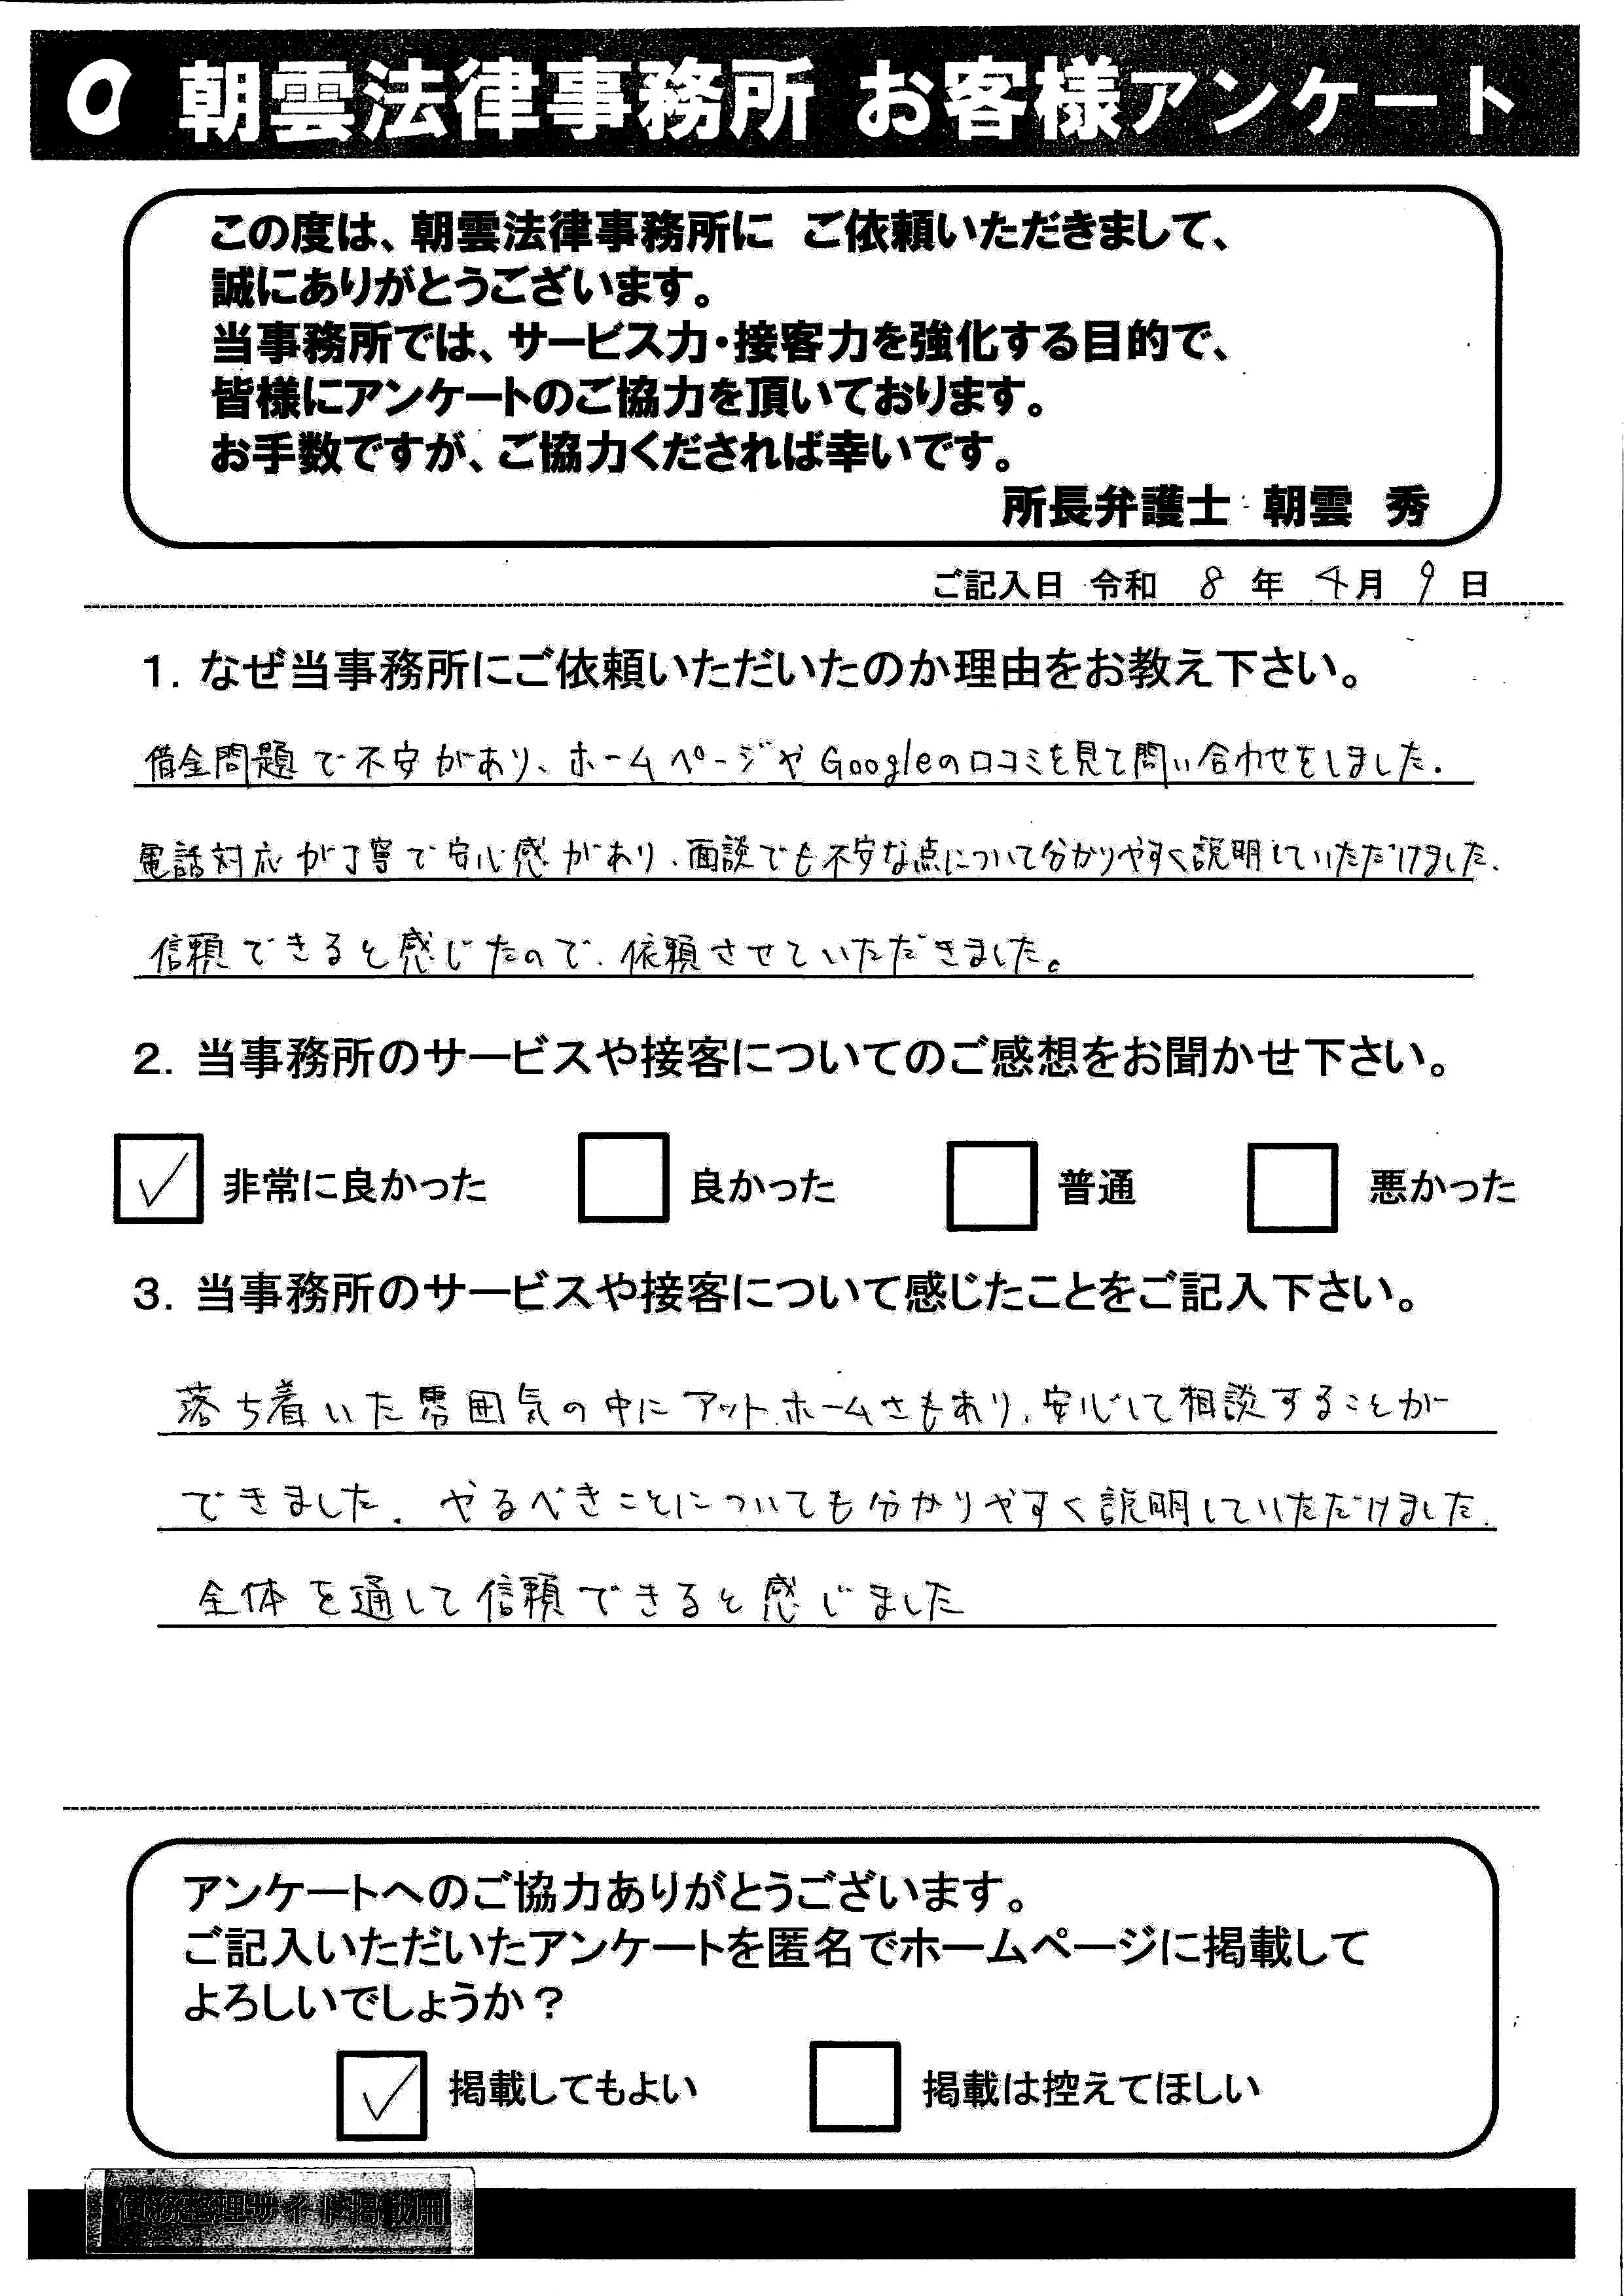 朝雲法律事務所 お客様アンケート
この度は、朝雲法律事務所に ご依頼いただきまして、
誠にありがとうございます。
当事務所では、サービス力・接客力を強化する目的で、
皆様にアンケートのご協力を頂いております。
お手数ですが、ご協力くだされば幸いです。
所長弁護士 朝雲 秀
ご記入日 令和 8 年 4月 9 日
1. なぜ当事務所にご依頼いただいたのか理由をお教え下さい。
借金問題で不安があり、ホームページやGoogleの口コミを見て問い合わせをしました.
電話対応が丁寧で安心感があり、面談でも不安な点について分かりやすく説明していただけました.
信頼できると感じたので、依頼させていただきました。
2. 当事務所のサービスや接客についてのご感想をお聞かせ下さい。
✓ 非常に良かった 良かった 普通 悪かった
3. 当事務所のサービスや接客について感じたことをご記入下さい。
落ち着いた雰囲気の中にアットホームさもあり、安心して相談することが
できました. やるべきことについても分かりやすく説明していただけました.
全体を通して信頼できると感じました
アンケートへのご協力ありがとうございます。
ご記入いただいたアンケートを匿名でホームページに掲載して
よろしいでしょうか？
✓ 掲載してもよい 掲載は控えてほしい
債務整理サイト掲載用